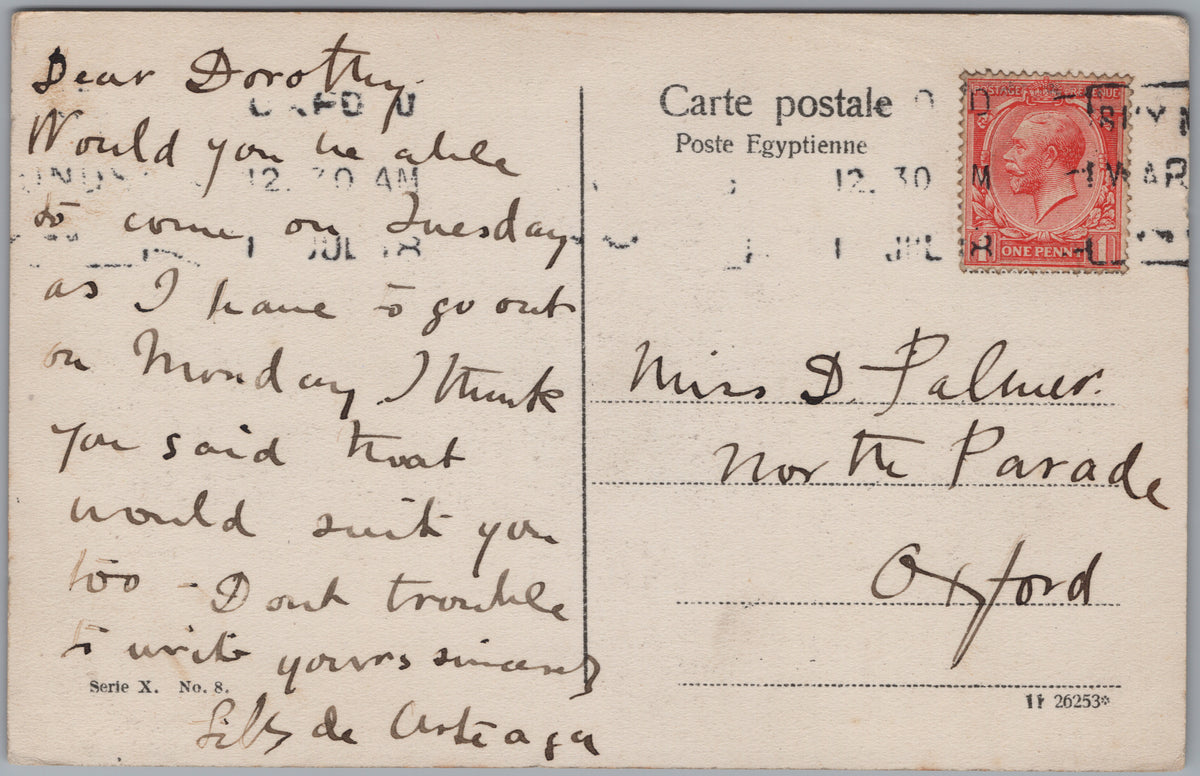 Dear Dorothy.
Would you be able
to come on Tuesday
as I have to go out
on Monday I think
you said that
would suit you
too - Dont trouble
to write yours sincerely
de Arteaga
Serie X. No. 8.
Carte postale
Poste Egyptienne
12.30 AM
1 JUL 18
12.30
1 JUL 18
POSTAGE REVENUE
ONE PENNY
Miss D. Palmer.
North Parade
Oxford
11 26253*